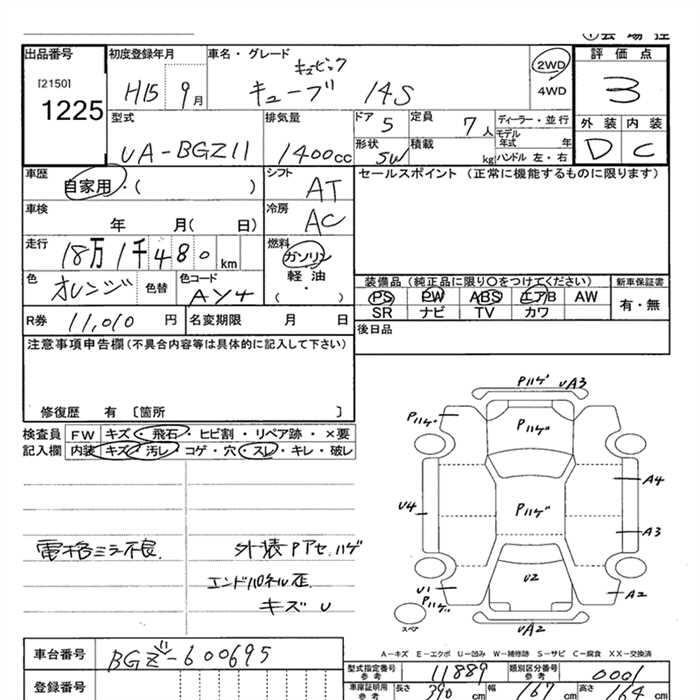 出品番号
[2150]
1225
初度登録年月
H15 9月
車名・グレード
キュービック
キューブ 14S
2WD
4WD
評価点
3
外装 内装
D C
型式
UA-BGZ11
排気量
1400cc
ドア 5
定員 7人
ディーラー・並行
モデル
年式 年
形状 SW
積載 kg
ハンドル 左・右
車歴
自家用・( )
シフト
AT
セールスポイント (正常に機能するものに限ります)
車検
年 月( 日)
冷房
AC
走行
18万1千480km
燃料
ガソリン
軽油
( ・ )
色
オレンジ
色替
色コード
AY4
装備品(純正品に限り○をつけてください)
新車保証書
PS PW ABS エアB AW
SR ナビ TV カワ
有・無
R券 11,010円
名変期限 月 日
後日品
注意事項申告欄(不具合内容等は具体的に記入して下さい)
修復歴 有 〔箇所 〕
検査員 FW キズ・飛石・ヒビ割・リペア跡・×要
記入欄 内装 キズ・汚レ・コゲ・穴・スレ・キレ・破レ
電格ミラー不良
外装Pアセ.ハゲ
エンドパネル歪
キズ U
Pハゲ UA3
Pハゲ
Pハゲ
A4
U4
Pハゲ
A3
U2
U1
Pハゲ
A2
スペア
UA2
A-キズ E-エクボ U-凹み W-補修跡 S-サビ C-腐食 XX-交換済
車台番号
BGZ-600695
型式指定番号
参考
11889
類別区分番号
参考
0001
登録番号
車庫証明用
参考
長さ 390cm
幅 167cm
高さ 164cm